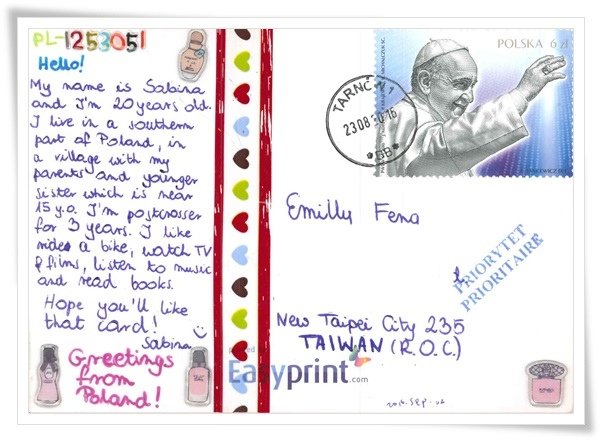 PL-1253051
Hello!
My name is Sabina
and I'm 20 years old.
I live in a southern
part of Poland, in
a village with my
parents and younger
sister which is near
15 y.o. I'm postcrosser
for 3 years. I like
ride a bike, watch TV
& films, listen to music
and read books.
Hope you'll like
that card!
Sabina
Greetings
from
Poland!
POLSKA 6 zł
TARNÓ
1
23.08.
16
BB
Emilly Fena
PRIORYTET
PRIORITAIRE
New Taipei City 235
TAIWAN (R.O.C)
Easyprint.com